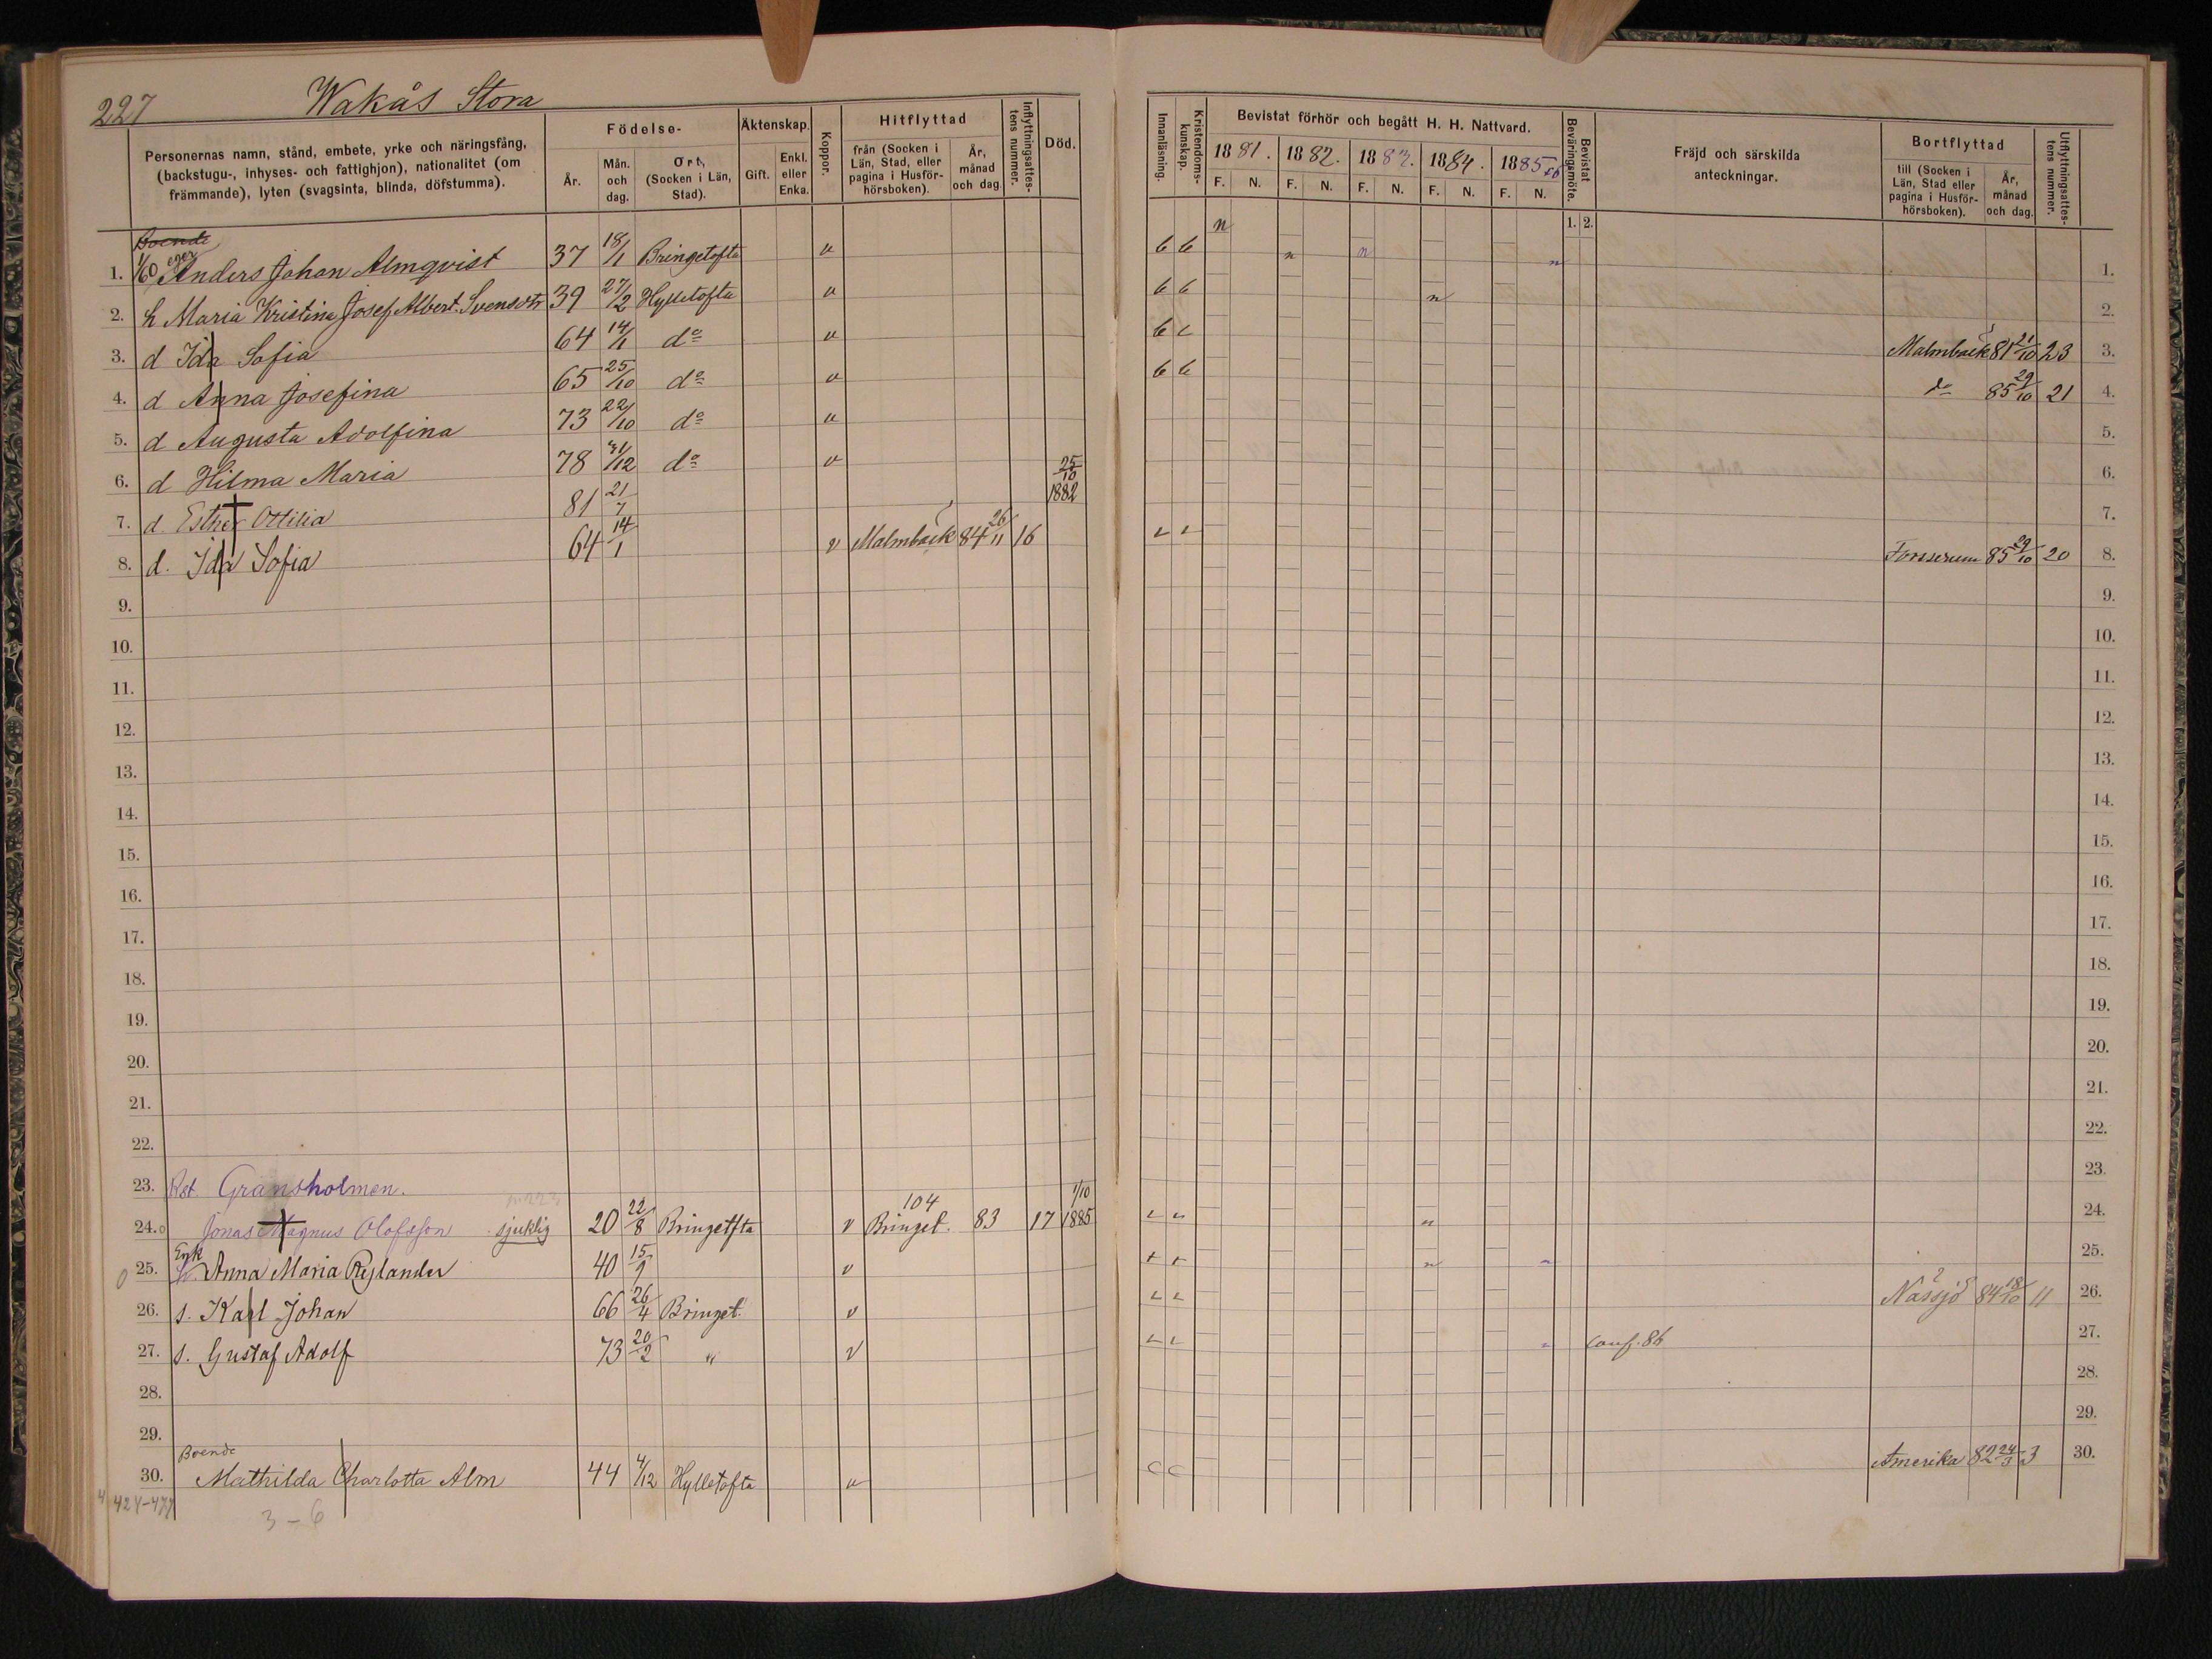 227 Wakås Stora
Personernas namn, stånd, embete, yrke och näringsfång, (backstugu-, inhyses- och fattighjon), nationalitet (om främmande), lyten (svagsinta, blinda, döfstumma).
Födelse-
År. Mån. och dag. Ort, (Socken i Län, Stad).
Äktenskap.
Gift. Enkl. eller Enka.
Koppor.
Hitflyttad
från (Socken i Län, Stad, eller pagina i Husförhörsboken). År, månad och dag.
Inflyttningsattestens nummer.
Död.
Innanläsning.
Kristendomskunskap.
Bevistat förhör och begått H. H. Nattvard.
1881. 1882. 1883. 1884. 1885
F. N. F. N. F. N. F. N. F. N.
Bevistat Beväringsmöte.
1. 2.
Fräjd och särskilda anteckningar.
Bortflyttad
till (Socken i Län, Stad eller pagina i Husförhörsboken). År, månad och dag.
Utflyttningsattestens nummer.
Boende
1. 1/60 eger Anders Johan Almqvist 37 18/1 Bringetofta v b b n n n n 1.
2. h Maria Kristina Josef. Albert. Svensdtr 39 27/2 Hylletofta v b b n 2.
3. d Ida Sofia 64 14/1 do v b Malmbäck 81 21/10 23 3.
4. d Anna Josefina 65 25/10 do v b b do 85 29/10 21 4.
5. d Augusta Adolfina 73 22/10 do v 5.
6. d Hilma Maria 78 31/12 do v 6.
7. d. Esther Ottilia 81 21/7 25/10 1882 7.
8. d. Ida Sofia 64 14/1 v Malmbäck 84 26/11 16 Forsserum 85 29/10 20 8.
9. 9.
10. 10.
11. 11.
12. 12.
13. 13.
14. 14.
15. 15.
16. 16.
17. 17.
18. 18.
19. 19.
20. 20.
21. 21.
22. 22.
23. Rst. Gransholmen. 23.
24. Jonas Magnus Olofsson sjuklig 20 22/8 Bringetfta v 104 Bringet. 83 17 1/10 1885 n 24.
25. Enk h. Anna Maria Rylander 40 15/9 v n n 25.
26. s. Karl Johan 66 26/4 Bringet. v Nässjö 84 18/10 11 26.
27. s. Gustaf Adolf 73 20/2 " v conf. 86 27.
28. 28.
29. 29.
Boende
30. Mathilda Charlotta Alm 44 4/12 Hylletofta v Amerika 82 24/3 3 30.
3-6